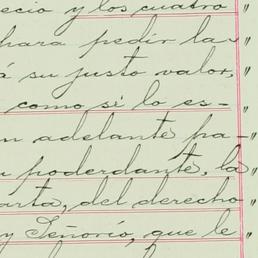 ecio y los cuatro
para pedir la
á su justo valor,
como si lo es-
n adelante pa-
u poderdante, la
arta, del derecho
y Señorío, que le